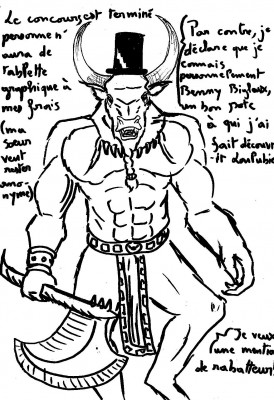 Le concours est terminé
personne n'
aura de
palette
graphique à
mes frais
(ma
sœur
veut
rester
ano-
nyme)
Par contre, je
déclare que je
connais
personnellement
Benny
un bon pote
à qui j'ai
fait découvr-
-ir
Je veux
une mention
de rabatteur!